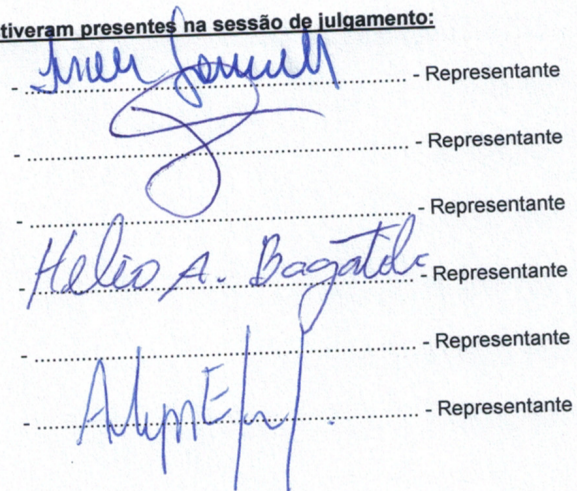 tiveram presentes na sessão de julgamento:
- ........................ - Representante
- ........................ - Representante
- ........................ - Representante
- Helio A. - Representante
- ........................ - Representante
- ........................ - Representante